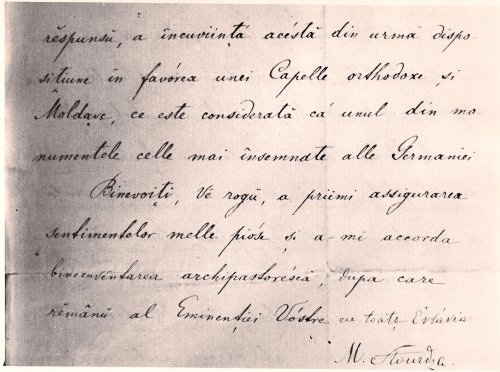 rĕspunsŭ, a încuviință acéstă din urmă dispo
sitiune în favórea unei Capelle orthodoxe și
Moldave, ce este considerată că unul din mo
numentele celle mai însemnate alle Germaniei
Binevoiți, Ve rogŭ, a priimi assigurarea
sentimentelor melle pióse și a-mi accorda
binecuvêntarea archipastorésca, dupa care
rĕmânŭ al Eminenției Vóstre cu toate Evlavia
M. Stourdza.